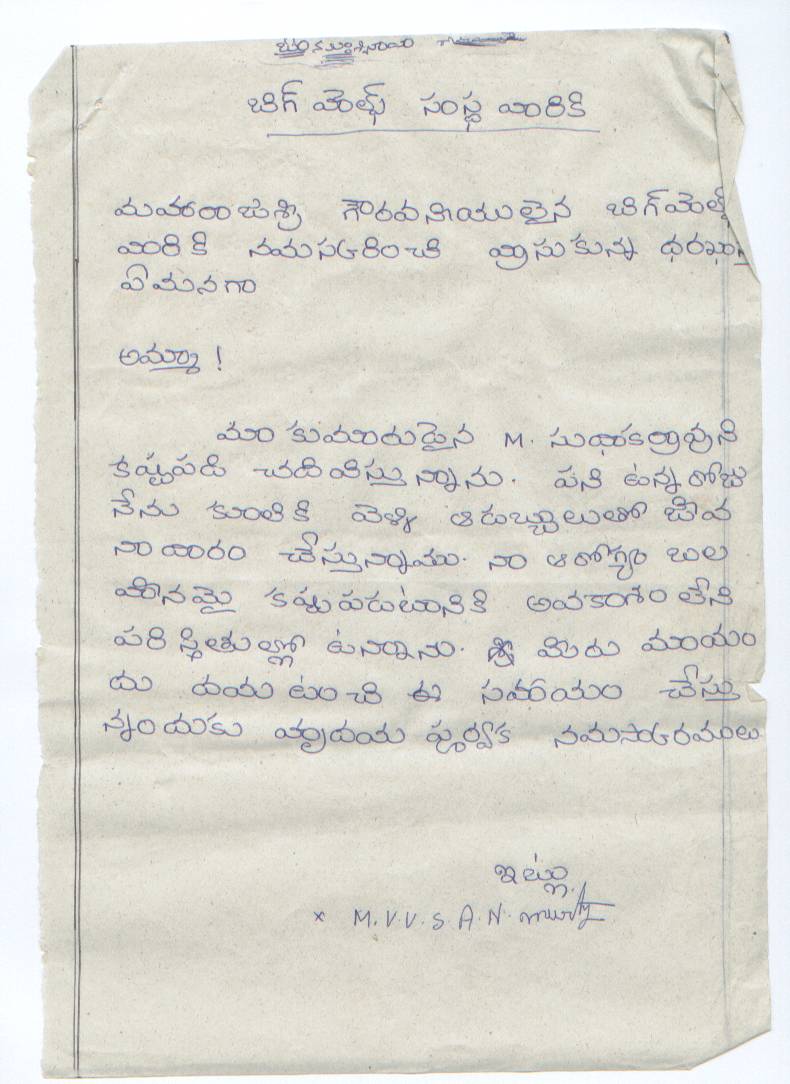 బిగ్ హెల్ప్ సంస్థ వారికి
మహారాజశ్రీ గౌరవనీయులైన బిగ్ హెల్ప్
వారికి నమస్కరించి వ్రాసుకున్న ధరఖాస్తు
ఏమనగా
అమ్మా !
మా కుమారుడైన M. సుధాకర్రావుని
కష్టపడి చదివిస్తున్నాను. పని ఉన్న రోజు
నేను కూలికి వెళ్ళి ఆ డబ్బులుతో జీవ
నాదారం చేస్తున్నాము. నా ఆరోగ్యం బల
హీనమై కష్టపడుటానికి అవకాశం లేని
పరిస్తితుల్లో ఉన్నాను. మీరు మాయం
దు దయ ఉంచి ఈ సహాయం చేస్తు
న్నందుకు హృదయ పూర్వక నమస్కారములు
ఇట్లు
x M.V.V.S.A.N. murty